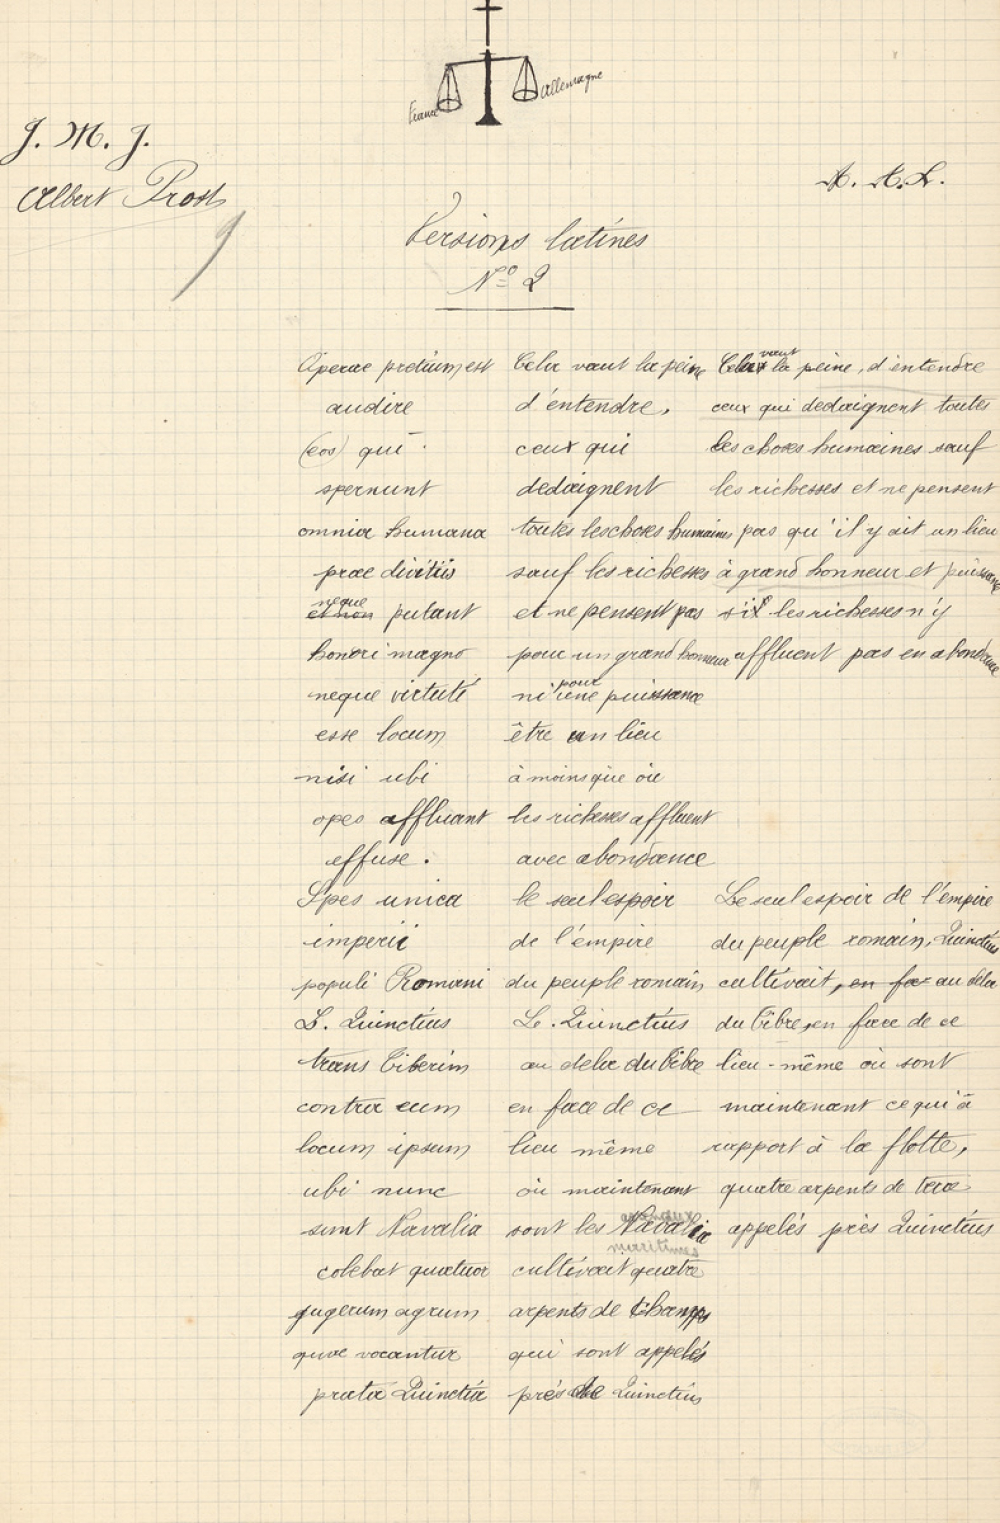 France Allemagne
J. M. J.
A. A. L.
Albert Prost
9
Versions latines
N° 2
Operae pretium est Cela vaut la peine Cela vaut la peine, d'entendre
audire d'entendre, ceux qui dedaignent toutes
(eos) qui ceux qui les choses humaines sauf
spernunt dedaignent les richesses et ne pensent
omnia humana toutes les choses humaines pas qu'il y ait un lieu
prae divitiis sauf les richesses à grand honneur et puissance
et non neque putant et ne pensent pas si les richesses n'y
honori magno pour un grand honneur affluent pas en abondance
neque virtuti ni pour une puissance
esse locum être un lieu
nisi ubi à moins que où
opes affluant les richesses affluent
effuse. avec abondance
Spes unica le seul espoir Le seul espoir de l'empire
imperii de l'empire du peuple romain, Quinctius
populi Romani du peuple romain cultivait, en fac au dela
L. Quinctius L. Quinctius du Tibre, en face de ce
trans Tiberim au dela du Tibre lieu-même où sont
contra eum en face de ce maintenant ce qui a
locum ipsum lieu même rapport à la flotte,
ubi nunc où maintenant quatre arpents de terre
sunt Navalia sont les Navalia appelés près Quinctius
maritimes
colebat quatuor cultivait quatre
jugerum agrum arpents de champs
quae vocantur qui sont appelés
prata Quinctia prés de Quinctius